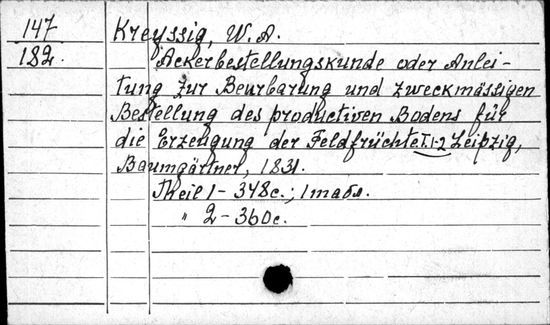 147 Kreyssig, W. A.
182. Ackerbestellungskunde oder Anlei-
tung zur Beurbarung und zweckmässigen
Bestellung des productiven Bodens für
die Erzeugung der Feldfrüchte T.1-2 Leipzig,
Baumgärtner, 1831.
Theil 1 - 348с.; 1 табл.
" 2 - 360с.